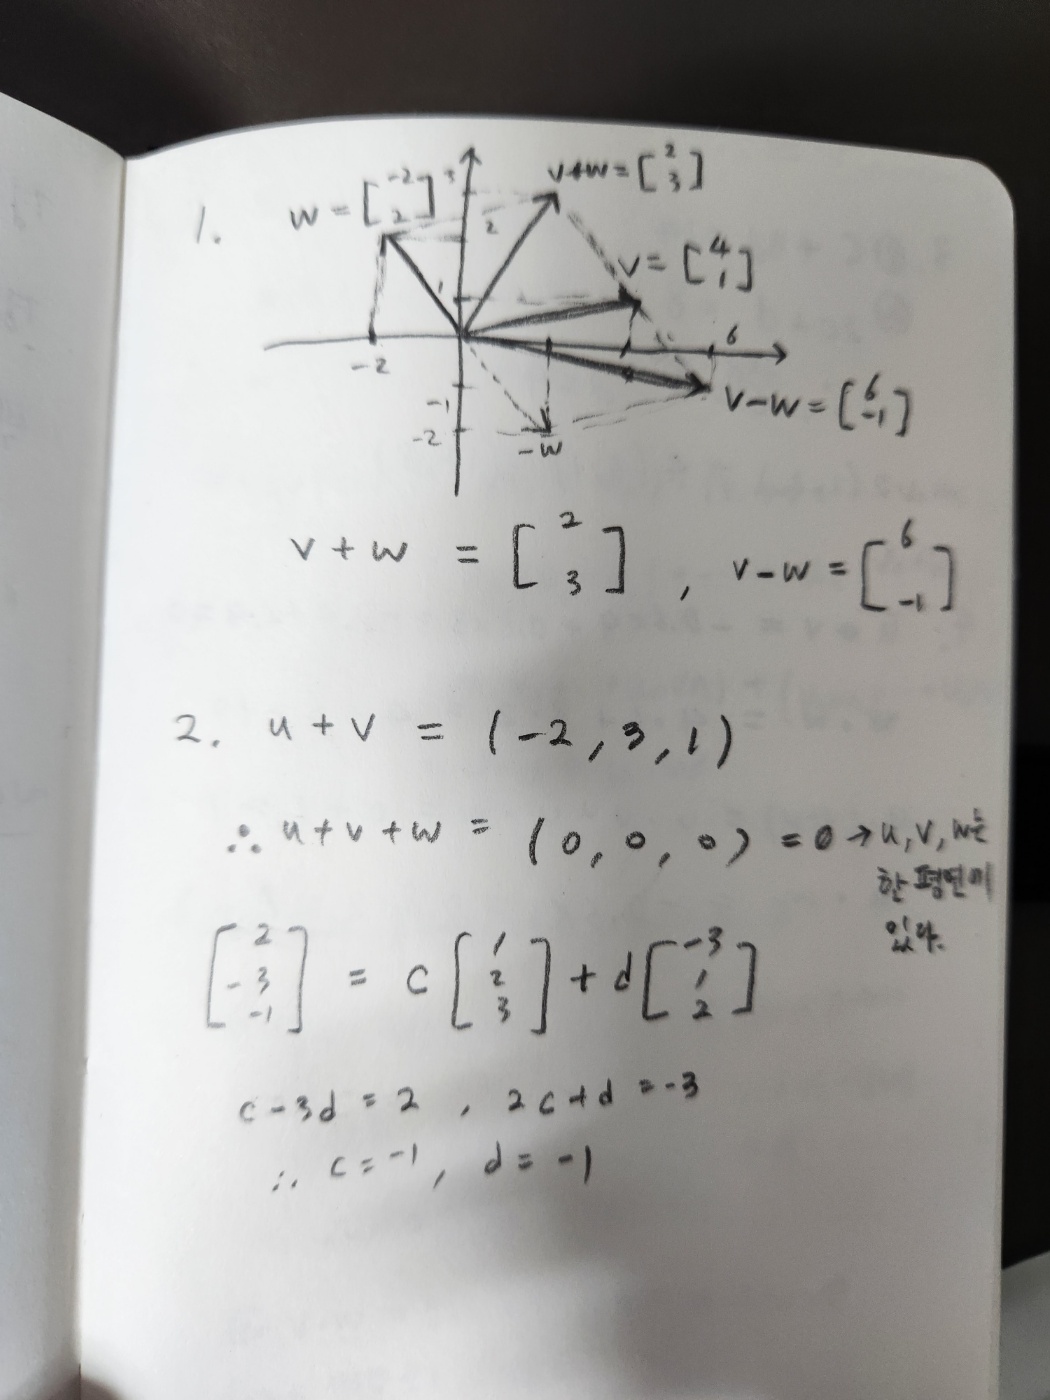 1.
w = [-2 2]
v+w = [2 3]
3
2
v = [4 1]
1
6
-2
-1
v-w = [6 -1]
-2
-w
v + w = [2 3] , v-w = [6 -1]
2. u + v = (-2, 3, 1)
∴ u+v+w = (0, 0, 0) = 0 → u, v, w는
한 평면에
있다.
[2 -3 -1] = c [1 2 3] + d [-3 1 2]
c-3d = 2 , 2c+d = -3
∴ c = -1, d = -1